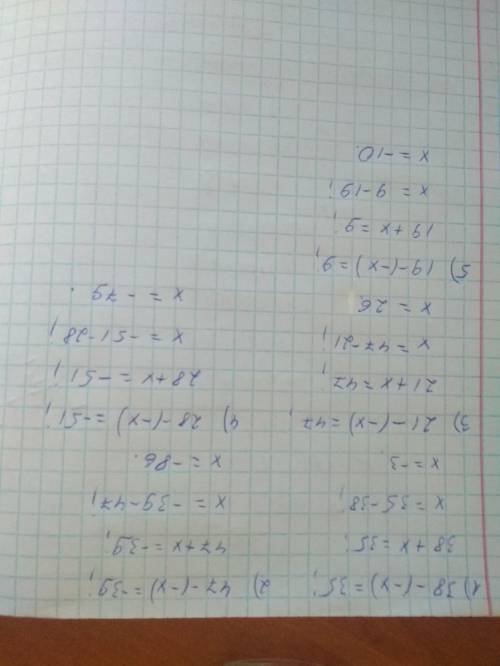 1) 38-(-x)=35;
38+x=35;
x=35-38;
x=-3.
2) 47-(-x)=-39;
47+x=-39;
x=-39-47;
x=-86.
3) 21-(-x)=47;
21+x=47;
x=47-21;
x=26.
4) 28-(-x)=-51;
28+x=-51;
x=-51-28;
x=-79.
5) 19-(-x)=9;
19+x=9;
x=9-19;
x=-10.